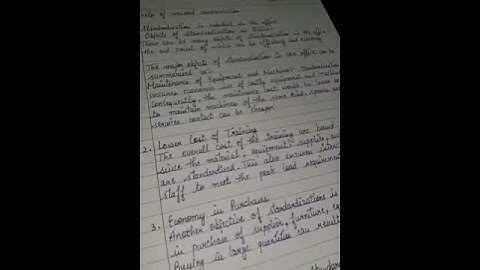 help of manual communication
Standardization is essential in the office
Objects of Standardization in Office:
There can be many objects of standardization in the office
the end point of which can be efficiency and economy
The major objects of standardization in the office can be
summarized as:
Maintenance of Equipment and Machine:- Standardization
ensures economic use of costly equipment and machines
consequently, the maintenance cost would be lesser
to maintain machines of the same kind, spares and
services contact can be cheaper
2. Lower Cost of Training
The overall cost of the training are bound
since the material, equipment, supplies,
are standardized. This also ensures
staff to meet the peak load requirement
3. Economy in Purchases
Another objective of standardizations is
in purchase of supplies, furniture,
Buying in large quantities can result